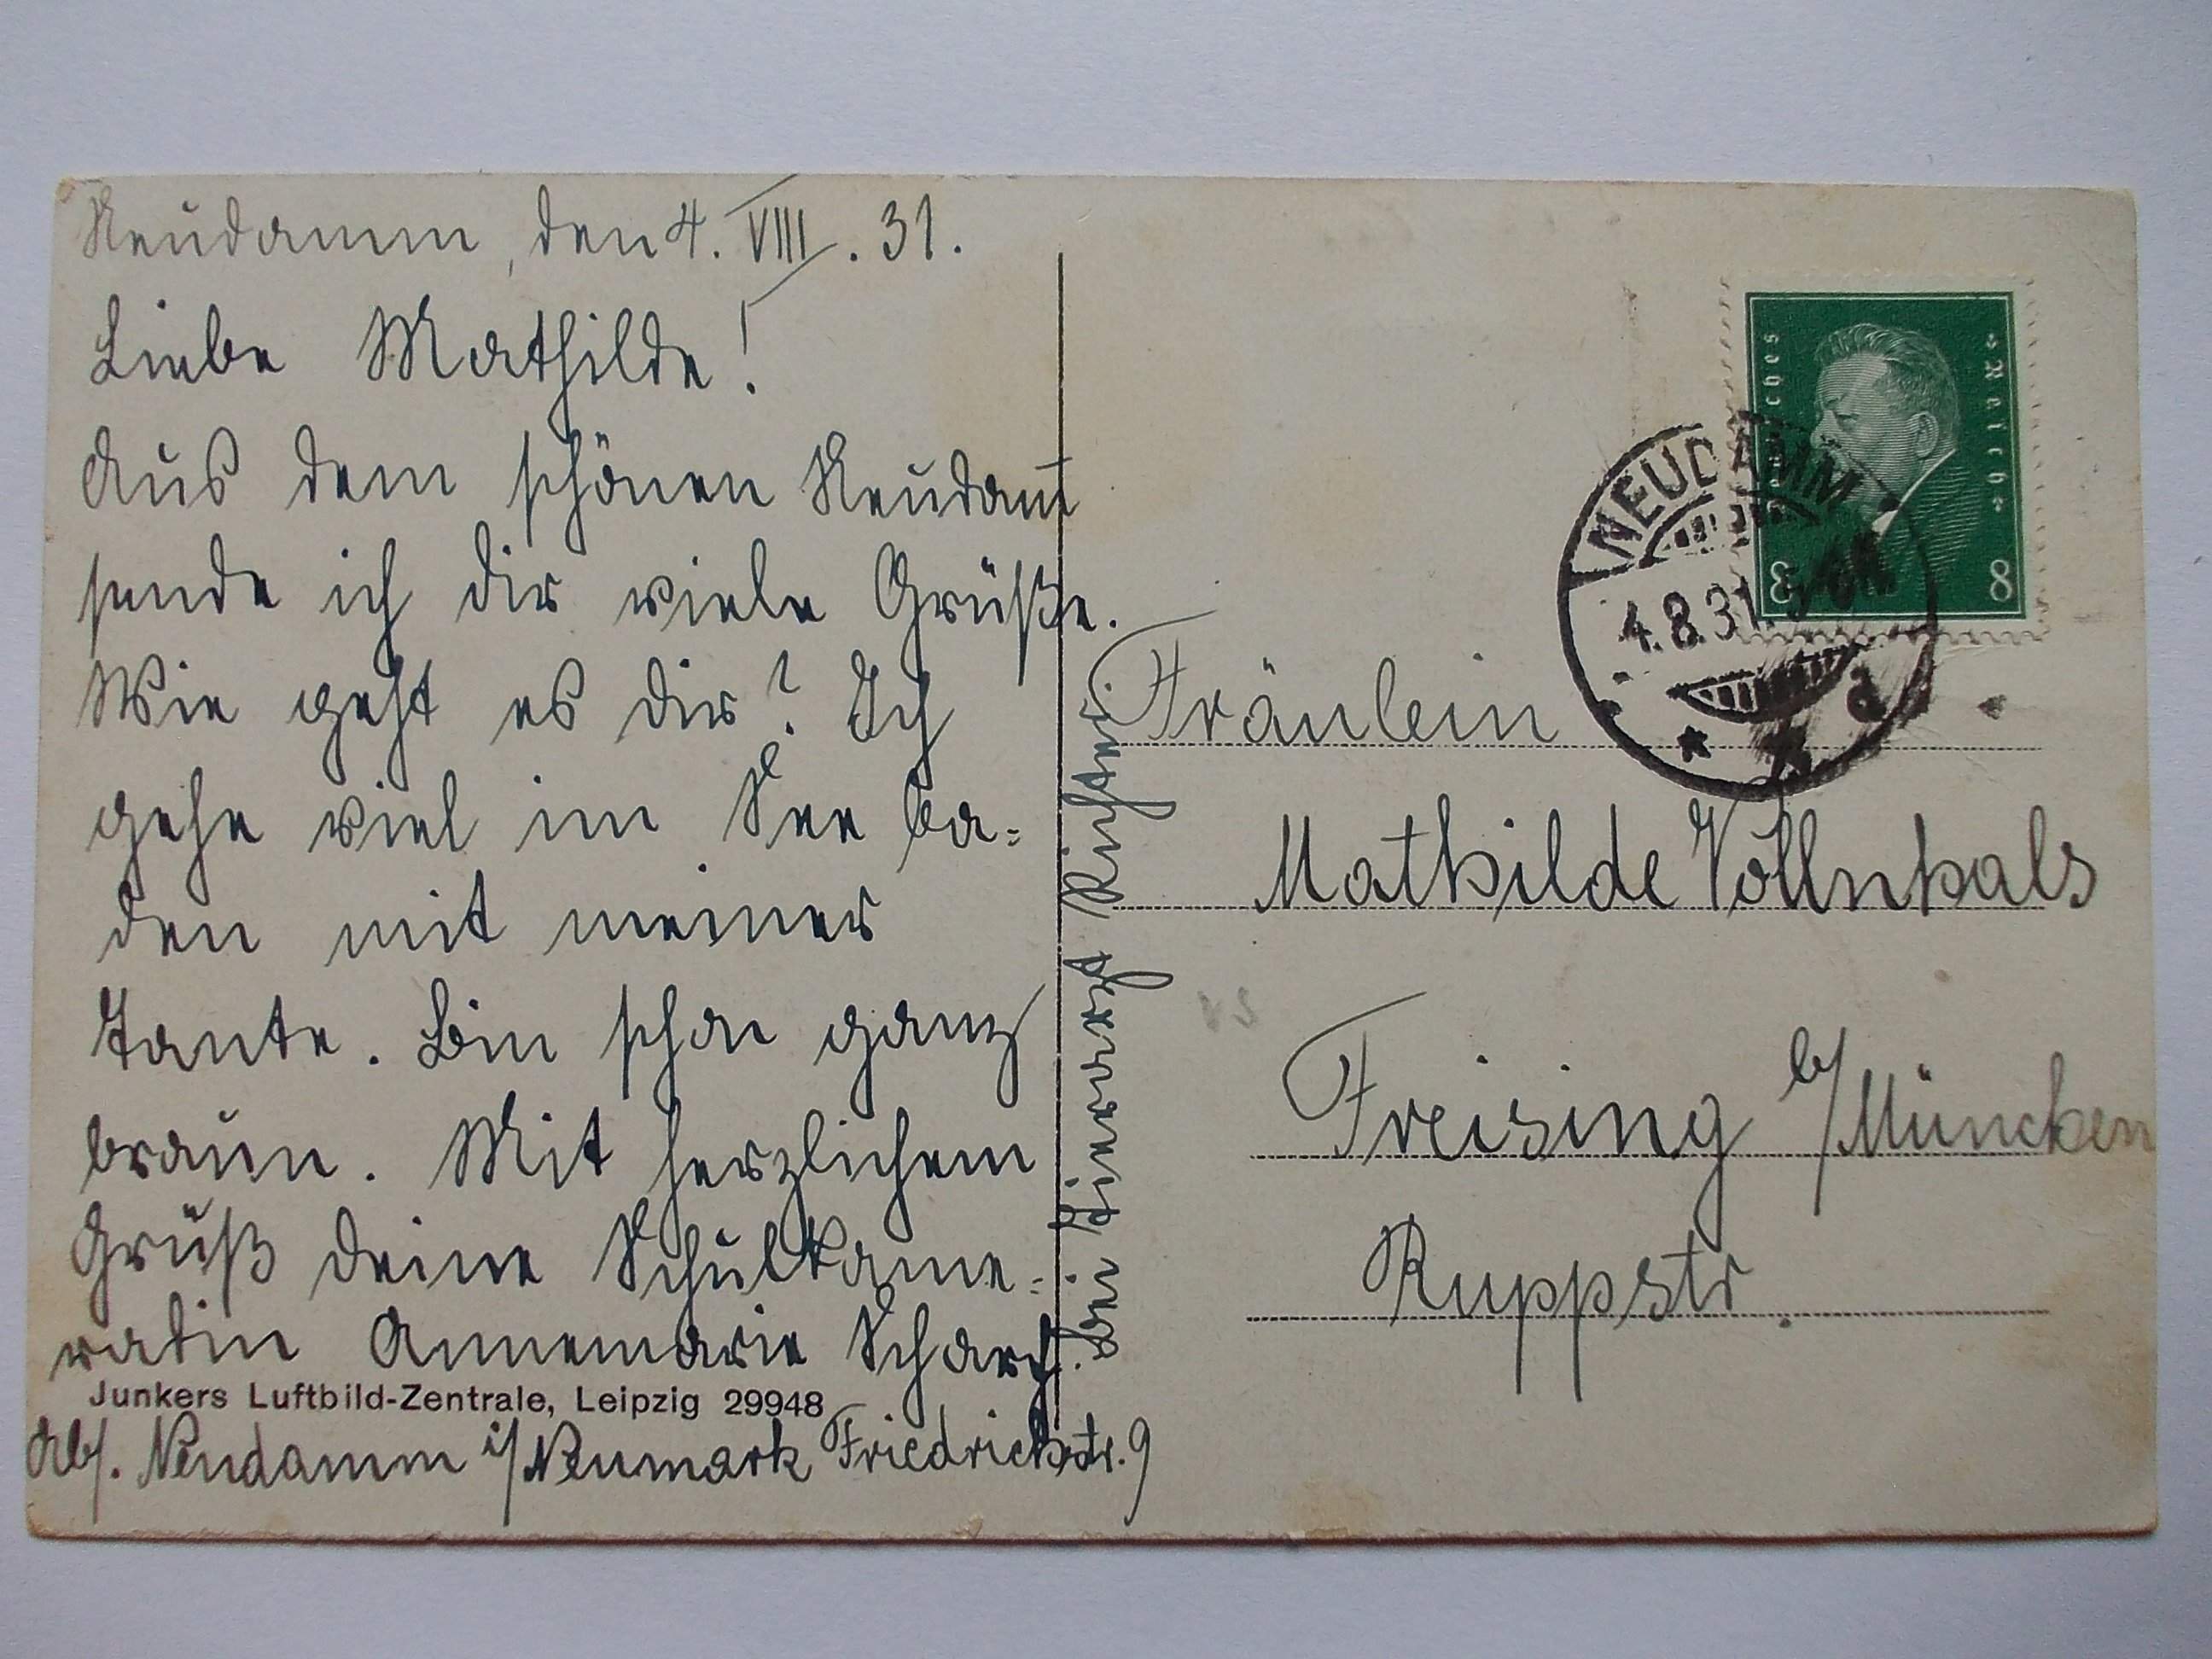 Neudamm, den 4. VIII. 31.
Liebe Mathilde!
Aus dem schönen Neudam̄
sende ich dir viele Grüße.
Wie geht es dir? Ich
gehe viel im See ba=
den mit meiner
Tante. Bin schon ganz
braun. Mit herzlichem
Gruß deine Schulkame=
radin Annemarie Scharf.
Junkers Luftbild-Zentrale, Leipzig 29948
Abs. Neudamm i/Neumark Friedrichstr. 9
bei Tierarzt Richter.
Deutsches Reich
8 8
NEUDAMM
4.8.31.
d
Fräulein
Mathilde Vollnhals
Freising b/München
Ruppstr.